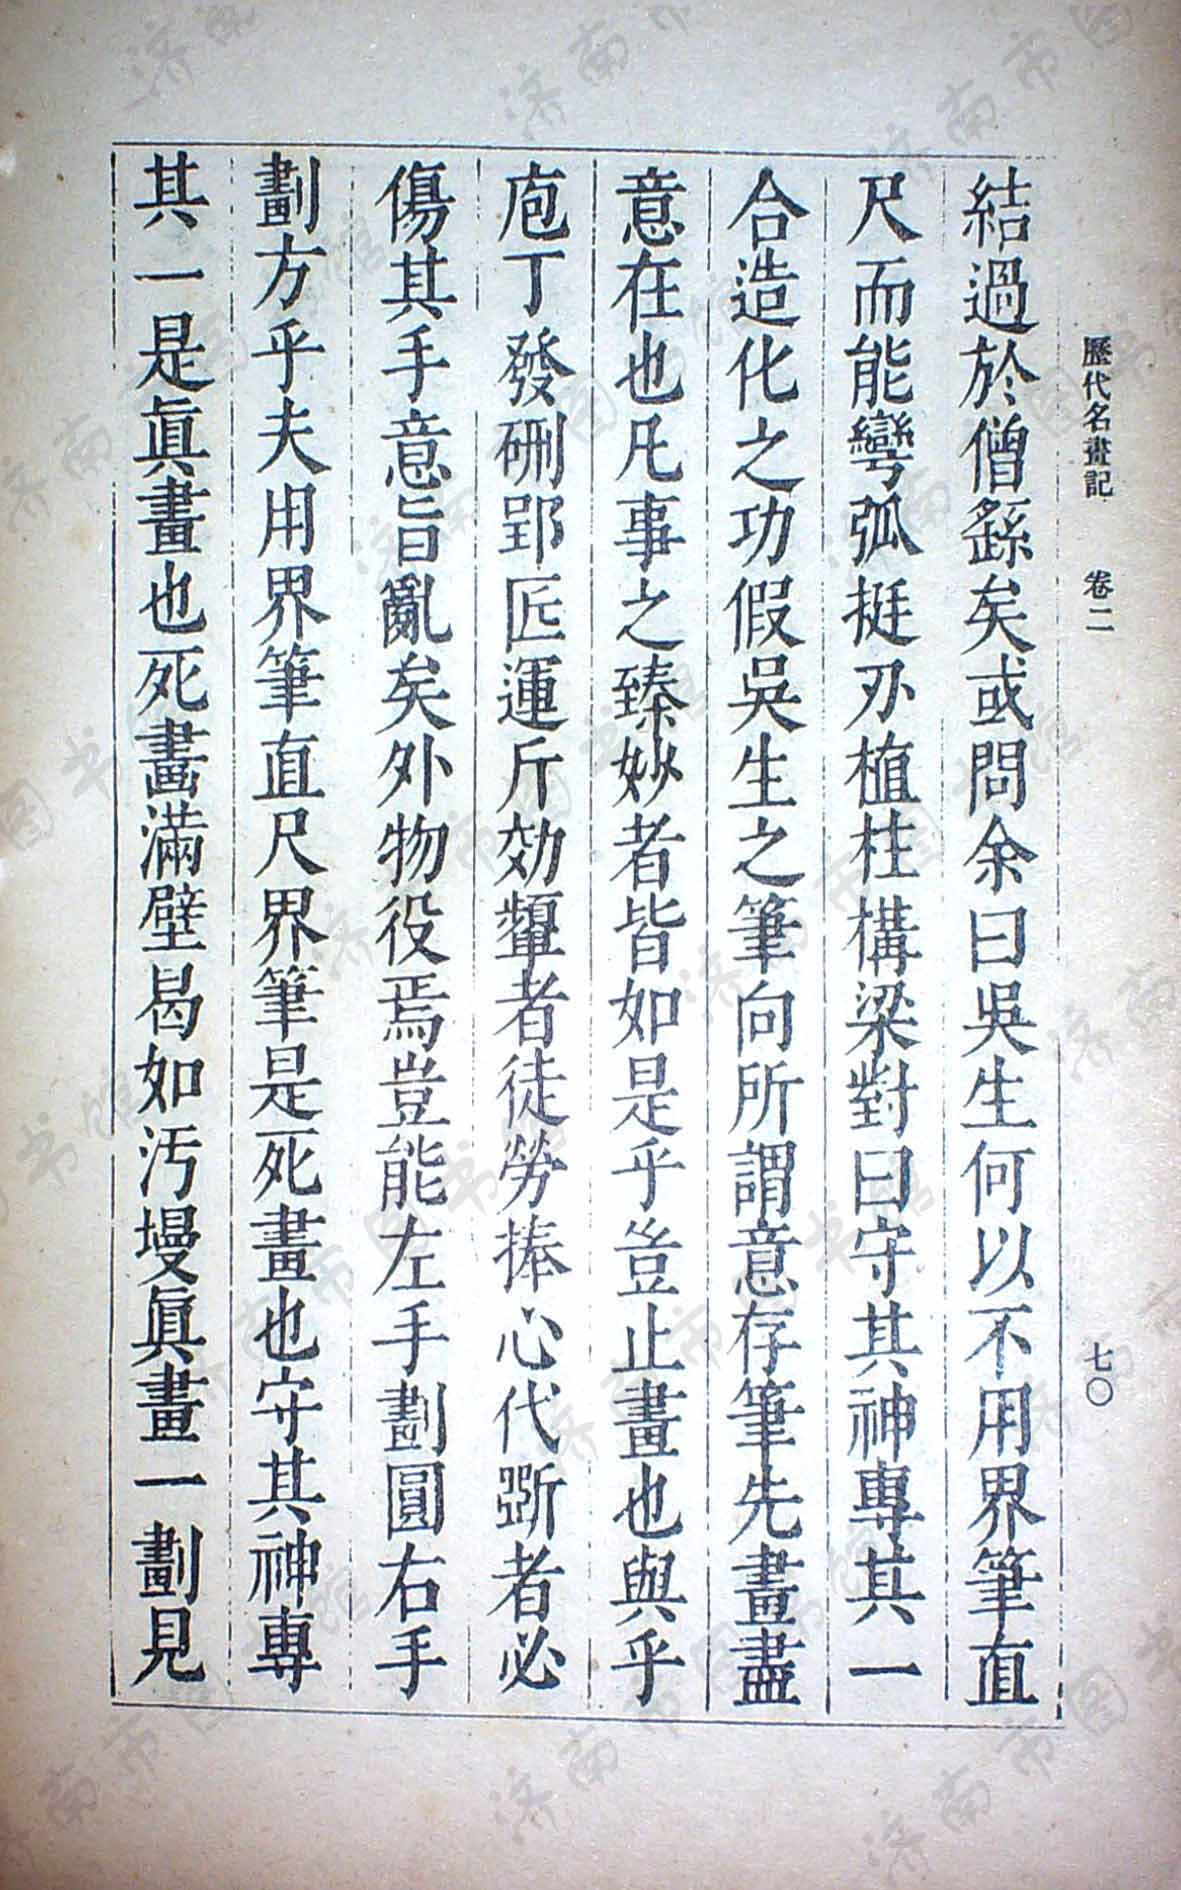 歷代名畫記　卷二　七〇
結過於僧繇矣或問余曰吳生何以不用界筆直
尺而能彎弧挺刃植柱構梁對曰守其神專其一
合造化之功假吳生之筆向所謂意存筆先畫盡
意在也凡事之臻妙者皆如是乎豈止畫也與乎
庖丁發硎郢匠運斤效顰者徒勞捧心代斲者必
傷其手意旨亂矣外物役焉豈能左手劃圓右手
劃方乎夫用界筆直尺界筆是死畫也守其神專
其一是眞畫也死畫滿壁曷如污墁眞畫一劃見
济南市图书馆